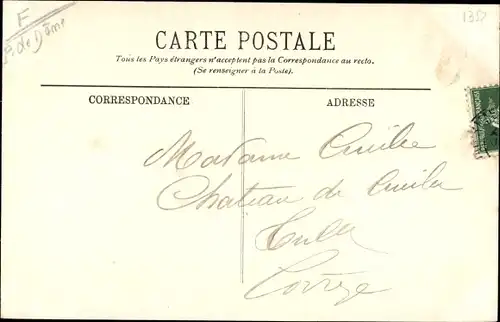 F
P. de Dôme
1357
CARTE POSTALE
Tous les Pays étrangers n'acceptent pas la Correspondance au recto.
(Se renseigner à la Poste).
CORRESPONDANCE
ADRESSE
Madame
Chateau de
Tulle
Corrèze